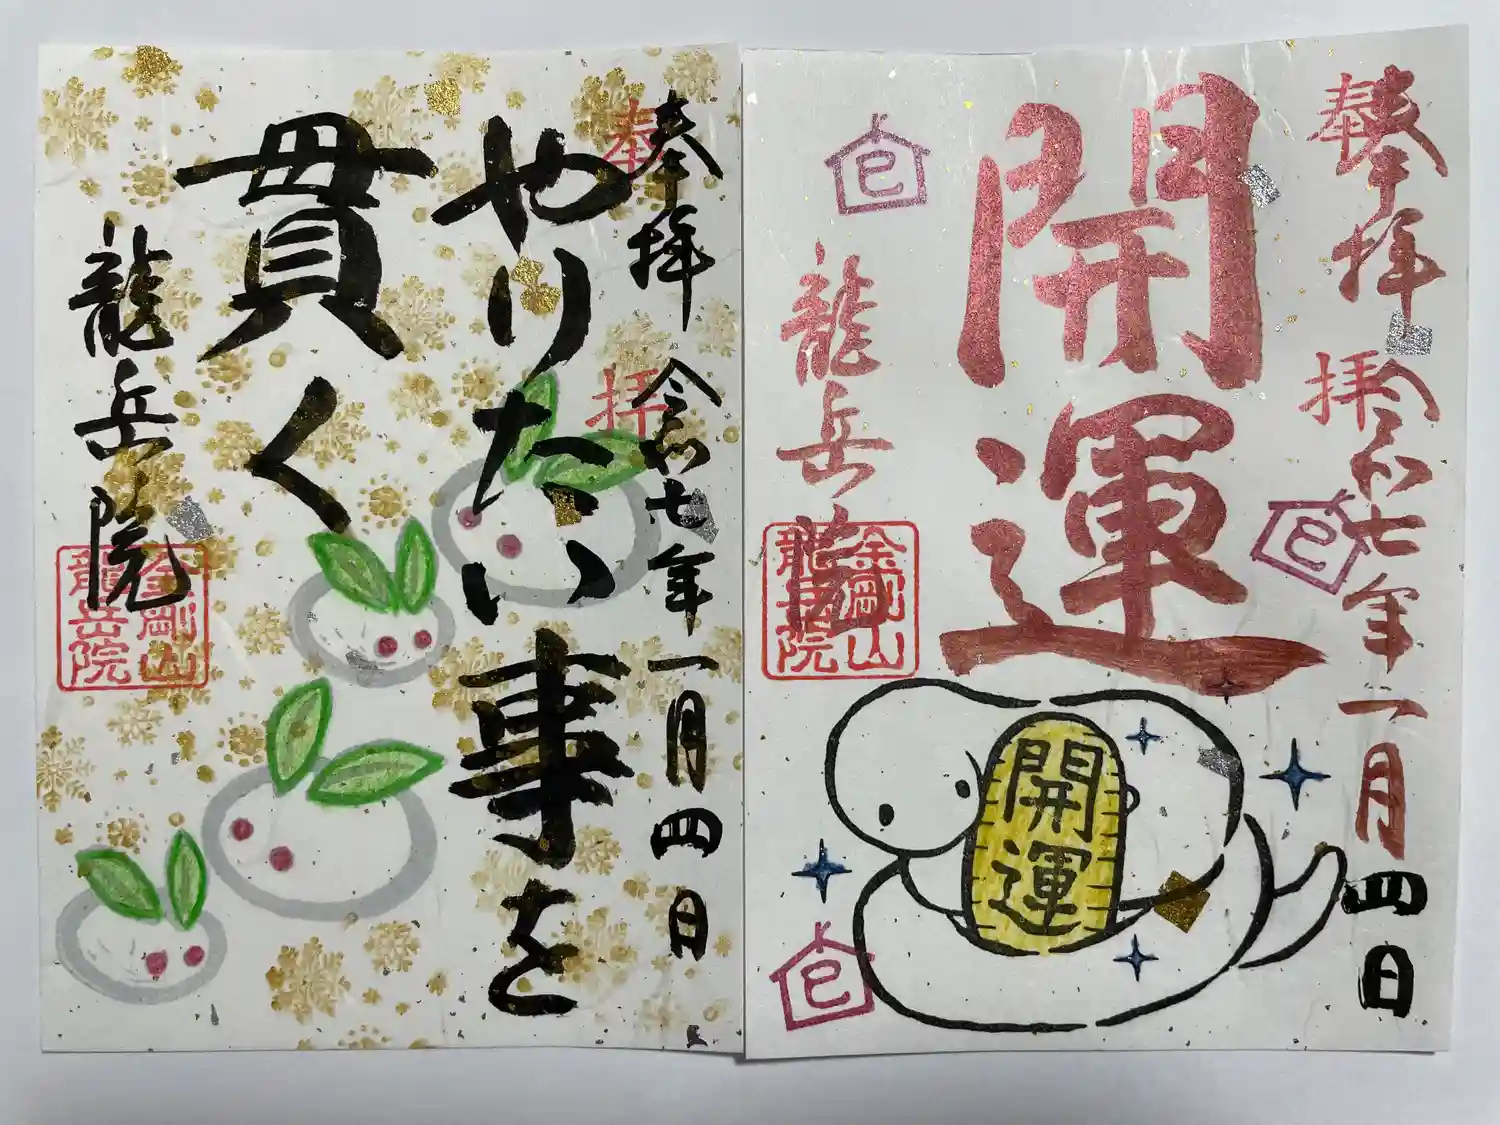 奉拝
奉拝
令和七年一月四日
開運
巳
巳
龍岳院
金剛山
龍岳院
開運
巳
奉拝
奉拝
令和七年一月四日
やりたい事を
貫く
龍岳院
金剛山
龍岳院